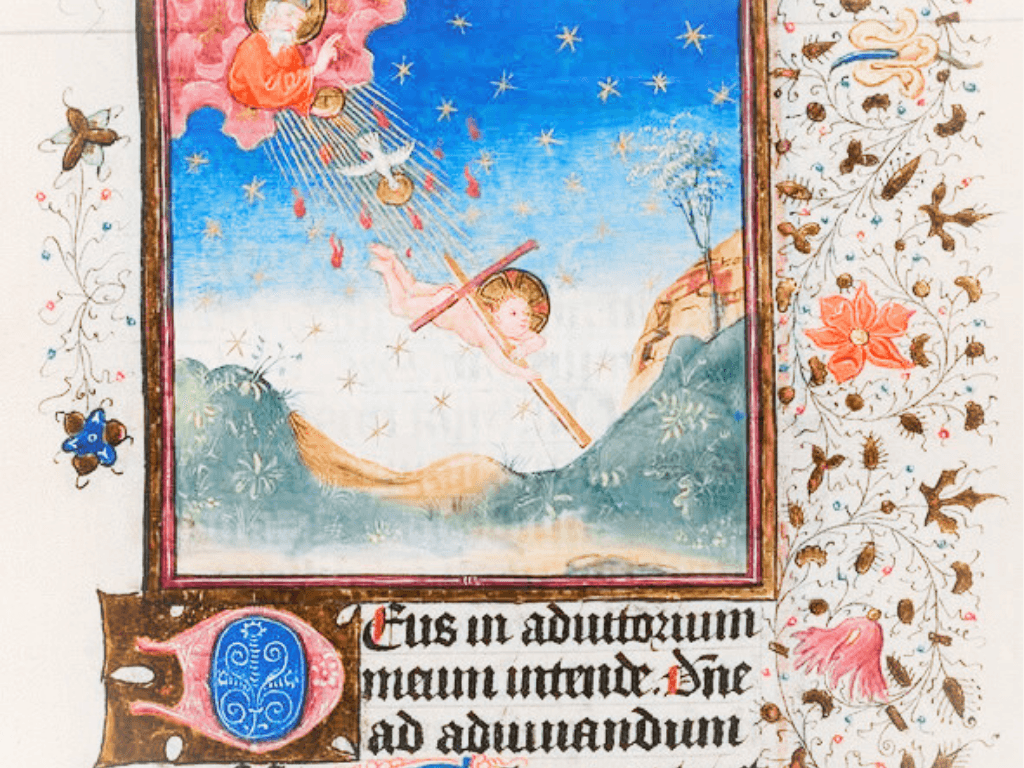 DEus in adiutorium
meum intende. Dn̄e
ad adiuuandum